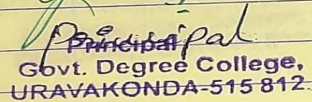 Principal
Govt. Degree College,
URAVAKONDA-515 812.